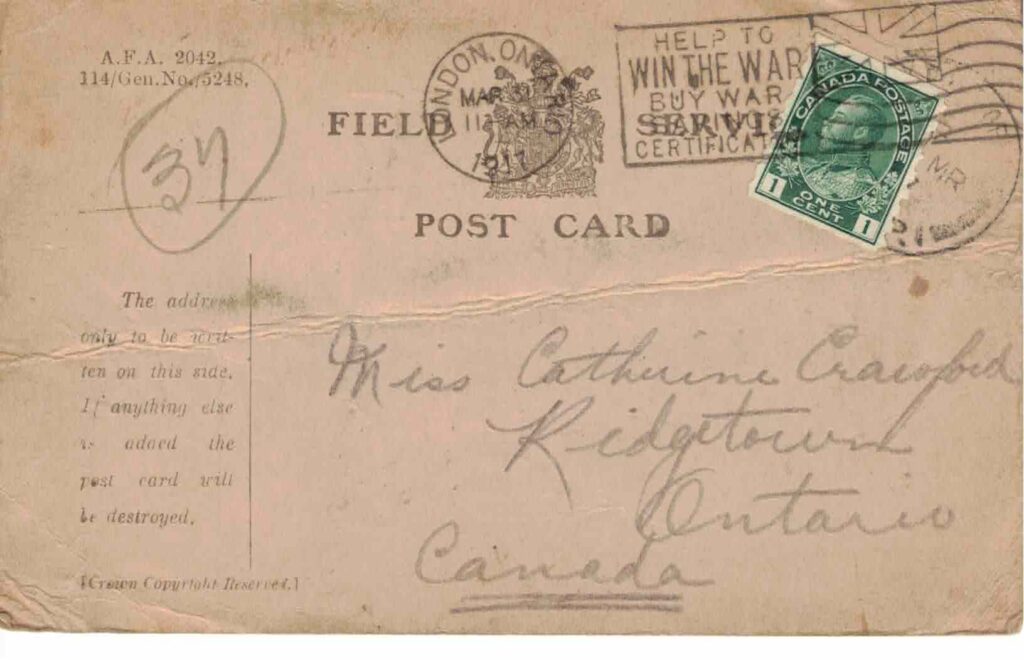 A.F.A. 2042.
114/Gen.No./5248.
37
LONDON, ONTARIO
MAR
11 AM
1917
HELP TO
WIN THE WAR
BUY WAR
SAVINGS
CERTIFICATES
CANADA POSTAGE
1 ONE CENT 1
MR
FIELD SERVICE
POST CARD
The address
only to be writ-
ten on this side.
If anything else
is added the
post card will
be destroyed.
[Crown Copyright Reserved.]
Miss Catherine Crawford
Ridgetown
Ontario
Canada